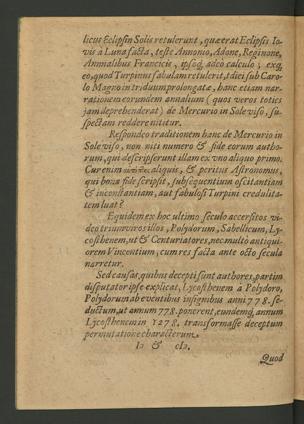 licus Eclipsin Solis retulerunt, quæ erat Eclipsis Io-
vis à Luna facta, teste Annonio, Adone, Reginone,
Annalibus Francicis, ipsoq́ adeo calculo; exq́
eo, quod Turpinus fabulam retulerit, diei sub Caro-
lo Magno in triduum prolongatæ, hanc etiam nar-
rationem eorundem annalium (quos veros toties
jam deprehenderat) de Mercurio in Sole viso, su-
spectam reddere nititur.
Respondeo traditionem hanc de Mercurio in
Sole viso, non niti numero & fide eorum autho-
rum, qui descripserunt illam ex uno aliquo primo.
Cur enim aliquis, & peritus Astronomus,
qui bona fide scripsit, subsequentium oscitantiam
& inconstantiam, aut fabulosi Turpini credulita-
tem luat?
Equidem ex hoc ultimo seculo accersitos vi-
deo trium viros illos, Polydorum, Sabellicum, Ly-
costhenem, ut & Centuriatores, nec multò antiqui-
orem Vincentium, cum res facta ante octo secula
narretur.
Sed causas, quibus decepti sunt authores, partim
disputator ipse explicat, Lycosthenem à Polydoro,
Polydorum ab eventibus insignibus anni 778. se-
ductum, ut annum 778. ponerent, eundemq́, annum
Lycosthenem in 1278. transformasse deceptum
permutatione characterum.
IƆ & cIƆ.
Quod